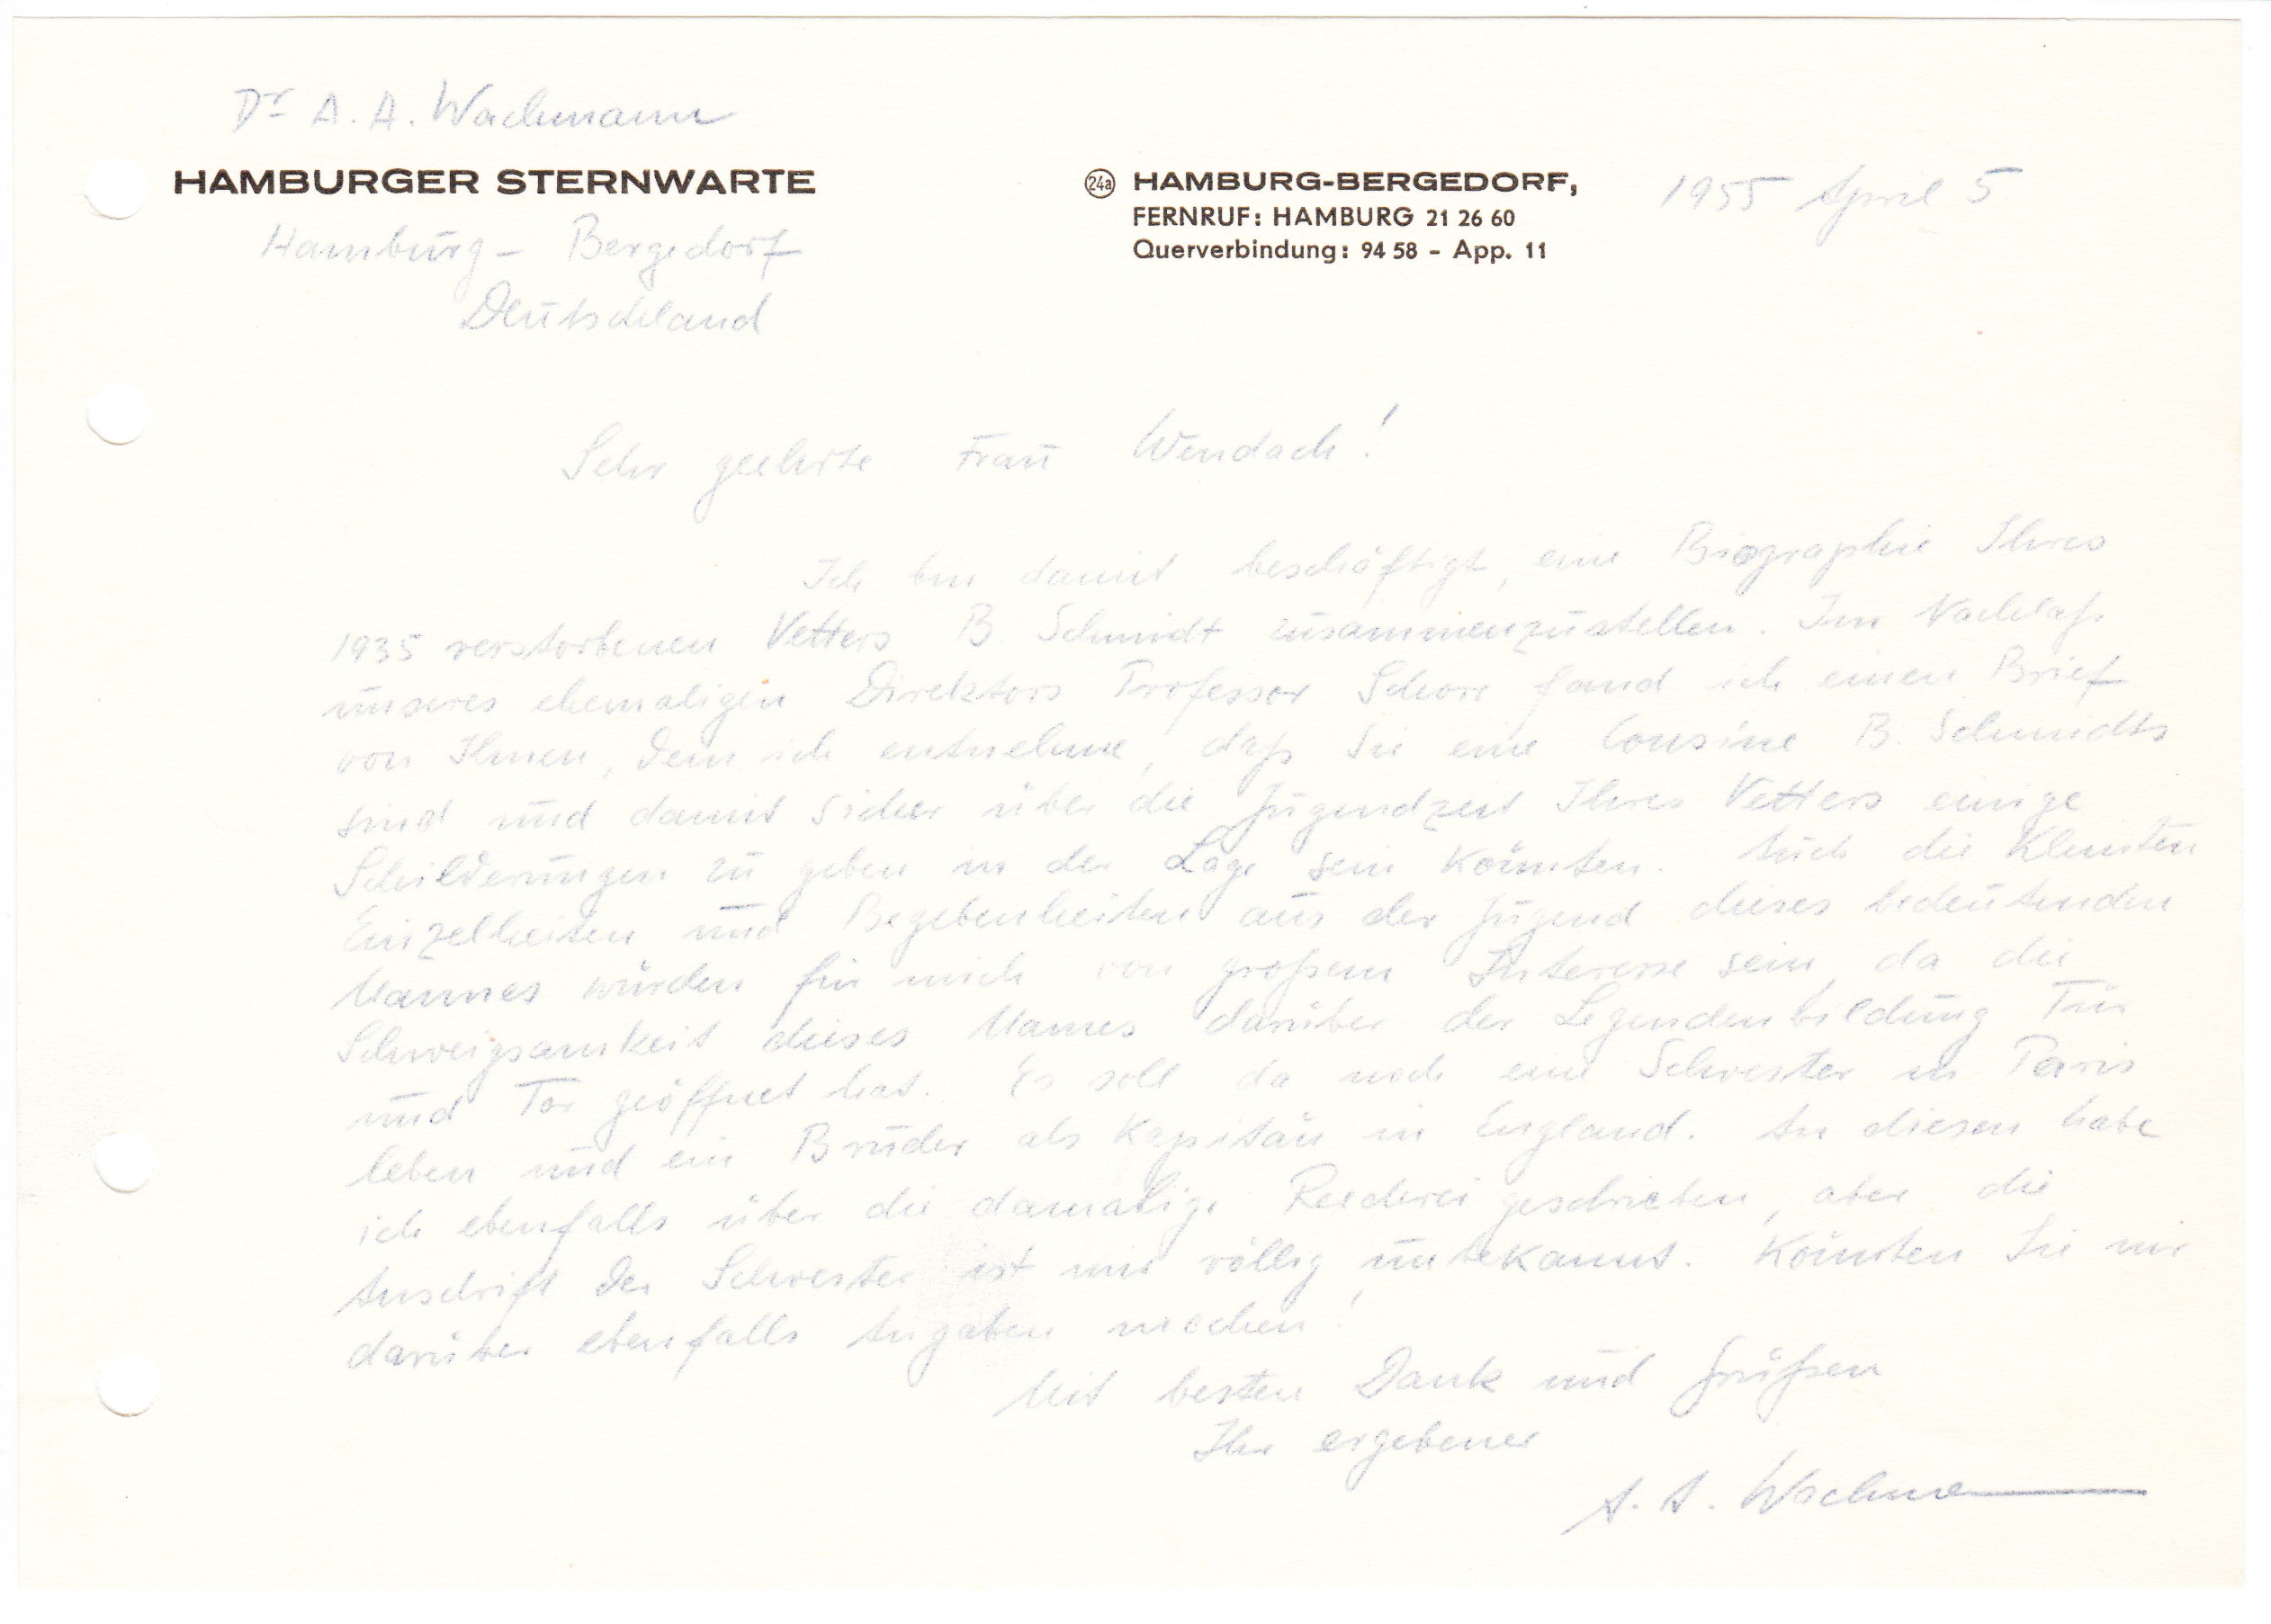 Dr A. A. Wachmann
HAMBURGER STERNWARTE
Hamburg - Bergedorf
Deutschland
24a HAMBURG-BERGEDORF, 1955 April 5
FERNRUF: HAMBURG 21 26 60
Querverbindung: 94 58 - App. 11
Sehr geehrte Frau Wendach!
Ich bin damit beschäftigt, eine Biographie Ihres
1935 verstorbenen Vetters B. Schmidt zusammenzustellen. Im Nachlaß
unseres ehemaligen Direktors Professor Schorr fand ich einen Brief
von Ihnen, dem ich entnehme, daß Sie eine Cousine B. Schmidts
sind und damit sicher über die Jugendzeit Ihres Vetters einige
Schilderungen zu geben in der Lage sein könnten. Auch die kleinsten
Einzelheiten und Begebenheiten aus der Jugend dieses bedeutenden
Mannes würden für mich von großem Interesse sein, da die
Schweigsamkeit dieses Mannes darüber der Legendenbildung Tür
und Tor geöffnet hat. Es soll da noch eine Schwester in Paris
leben und ein Bruder als Kapitän in England. An diesen habe
ich ebenfalls über die damalige Reederei geschrieben, aber die
Anschrift der Schwester ist mir völlig unbekannt. Könnten Sie mir
darüber ebenfalls Angaben machen!
Mit besten Dank und Grüßen
Ihr ergebener
A. A. Wachmann